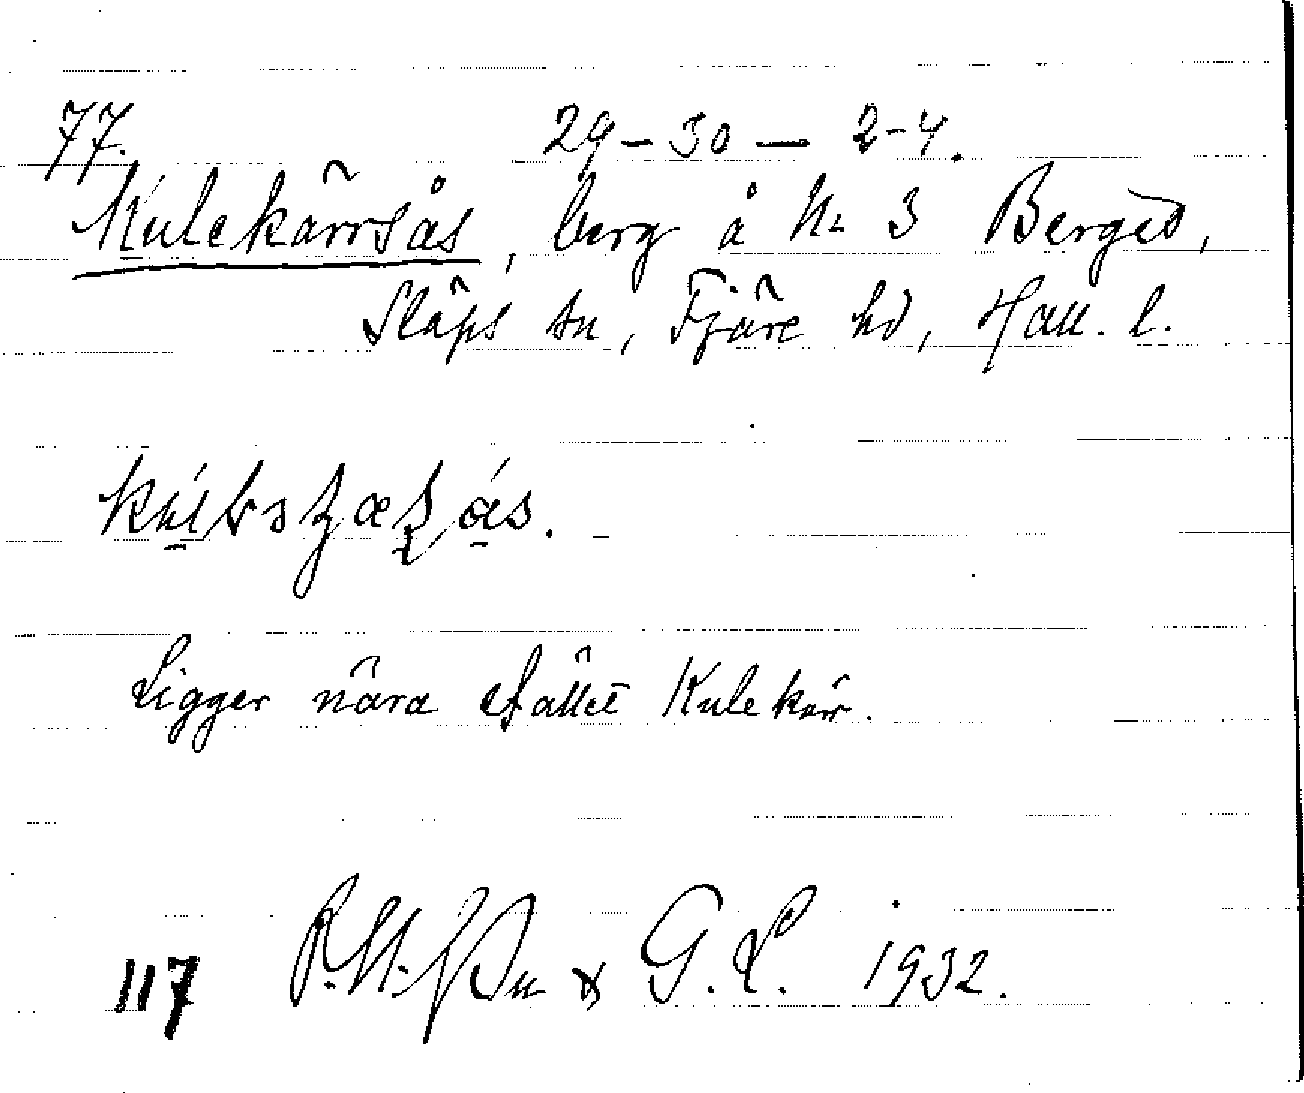 77. 29-30 - 2-4.
Kulekärrsås, berg å Nr 3 Berged,
Släps sn, Fjäre hd, Hall. l.
Ligger nära stället Kulekärr.
117 G. L. 1932.